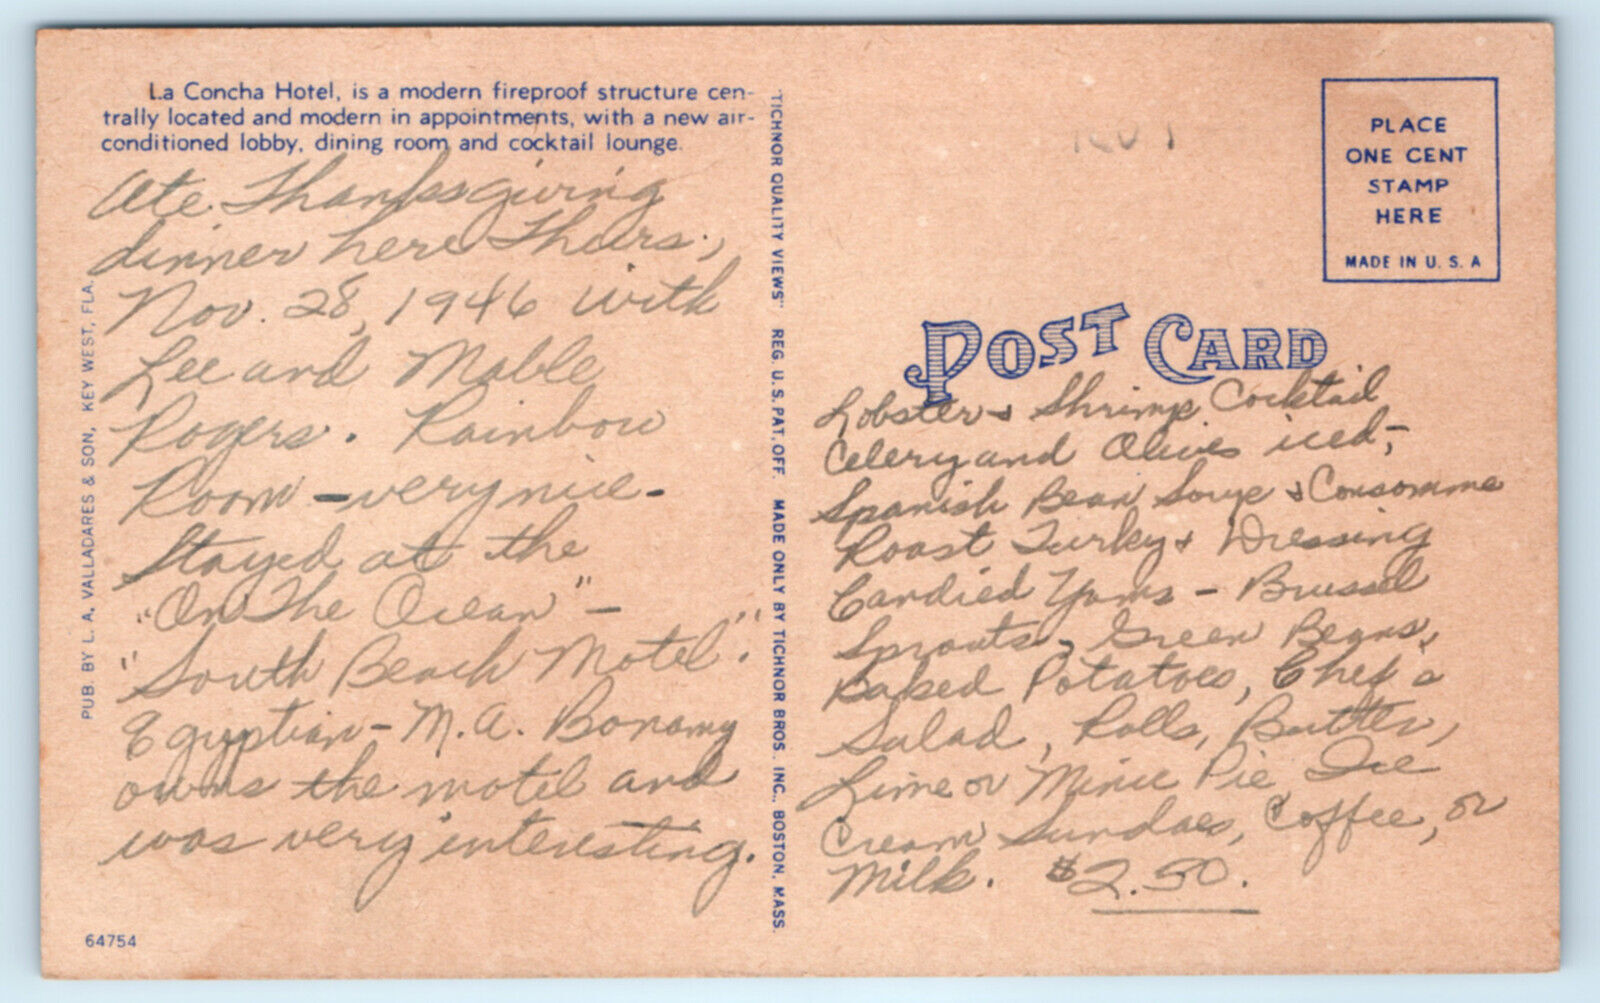 La Concha Hotel, is a modern fireproof structure cen-
trally located and modern in appointments, with a new air-
conditioned lobby, dining room and cocktail lounge.
Ate Thanksgiving
dinner here Thurs.,
Nov. 28, 1946 with
Lee and Mable
Rogers. Rainbow
Room - very nice -
Stayed at the
"On The Ocean" -
"South Beach Motel".
Egyptian - M.A. Bonamy
owns the motel and
was very interesting.
64754
PUB. BY L. A. VALLADARES & SON, KEY WEST, FLA.
"TICHNOR QUALITY VIEWS" REG. U. S. PAT. OFF. MADE ONLY BY TICHNOR BROS. INC., BOSTON, MASS.
PLACE
ONE CENT
STAMP
HERE
MADE IN U. S. A
POST CARD
Lobster & Shrimp Cocktail
Celery and Olives iced,-
Spanish Bean Soup & Consomme
Roast Turkey & Dressing
Candied Yams - Brussel
Sprouts, Green Beans,
Baked Potatoes, Chef's
Salad, Rolls, Butter,
Lime or Mince Pie Ice
Cream Sundaes, Coffee, or
Milk. $2.50.